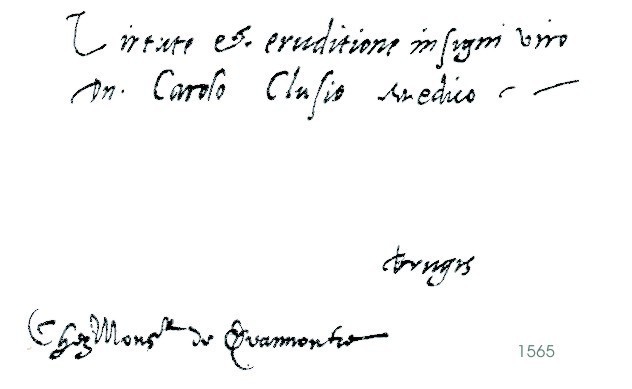 Virtute et eruditione insigni viro
Dn. Carolo Clusio Medico
Brugis
Chez Monsr de
1565